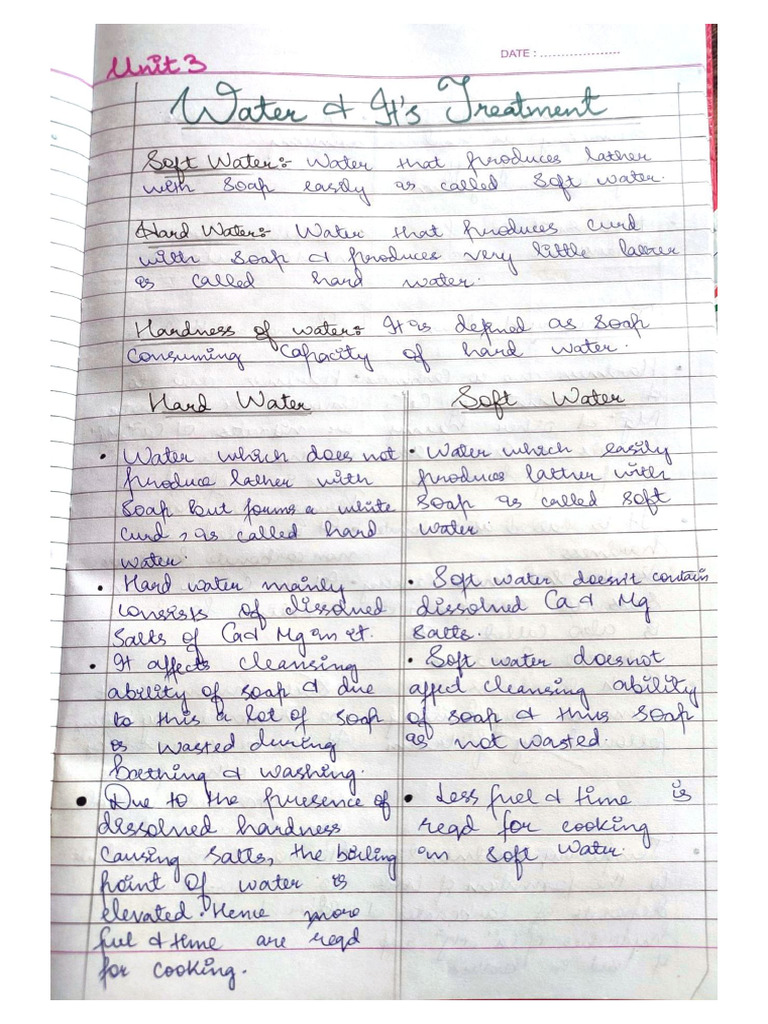 DATE : ...................
Unit 3
Water & It's Treatment
Soft Water:- Water that produces lather
with soap easily is called soft water.
Hard Water:- Water that produces curd
with soap & produces very little lather
is called hard water.
Hardness of water:- It is defined as soap
consuming capacity of hard water.
Hard Water
Soft Water
• Water which does not
produce lather with
soap but forms a white
curd, is called hard
water.
• Water which easily
produces lather with
soap is called soft
water
• Hard water mainly
consists of dissolved
salts of Ca & Mg in it.
• Soft water doesn't contain
dissolved Ca & Mg
salts.
• It affects cleansing
ability of soap & due
to this a lot of soap
is wasted during
bathing & washing.
• Soft water does not
affect cleansing ability
of soap & thus soap
is not wasted.
• Due to the presence of
dissolved hardness
causing salts, the boiling
point of water is
elevated. Hence more
fuel & time are reqd
for cooking.
• Less fuel & time is
reqd for cooking
in soft water.